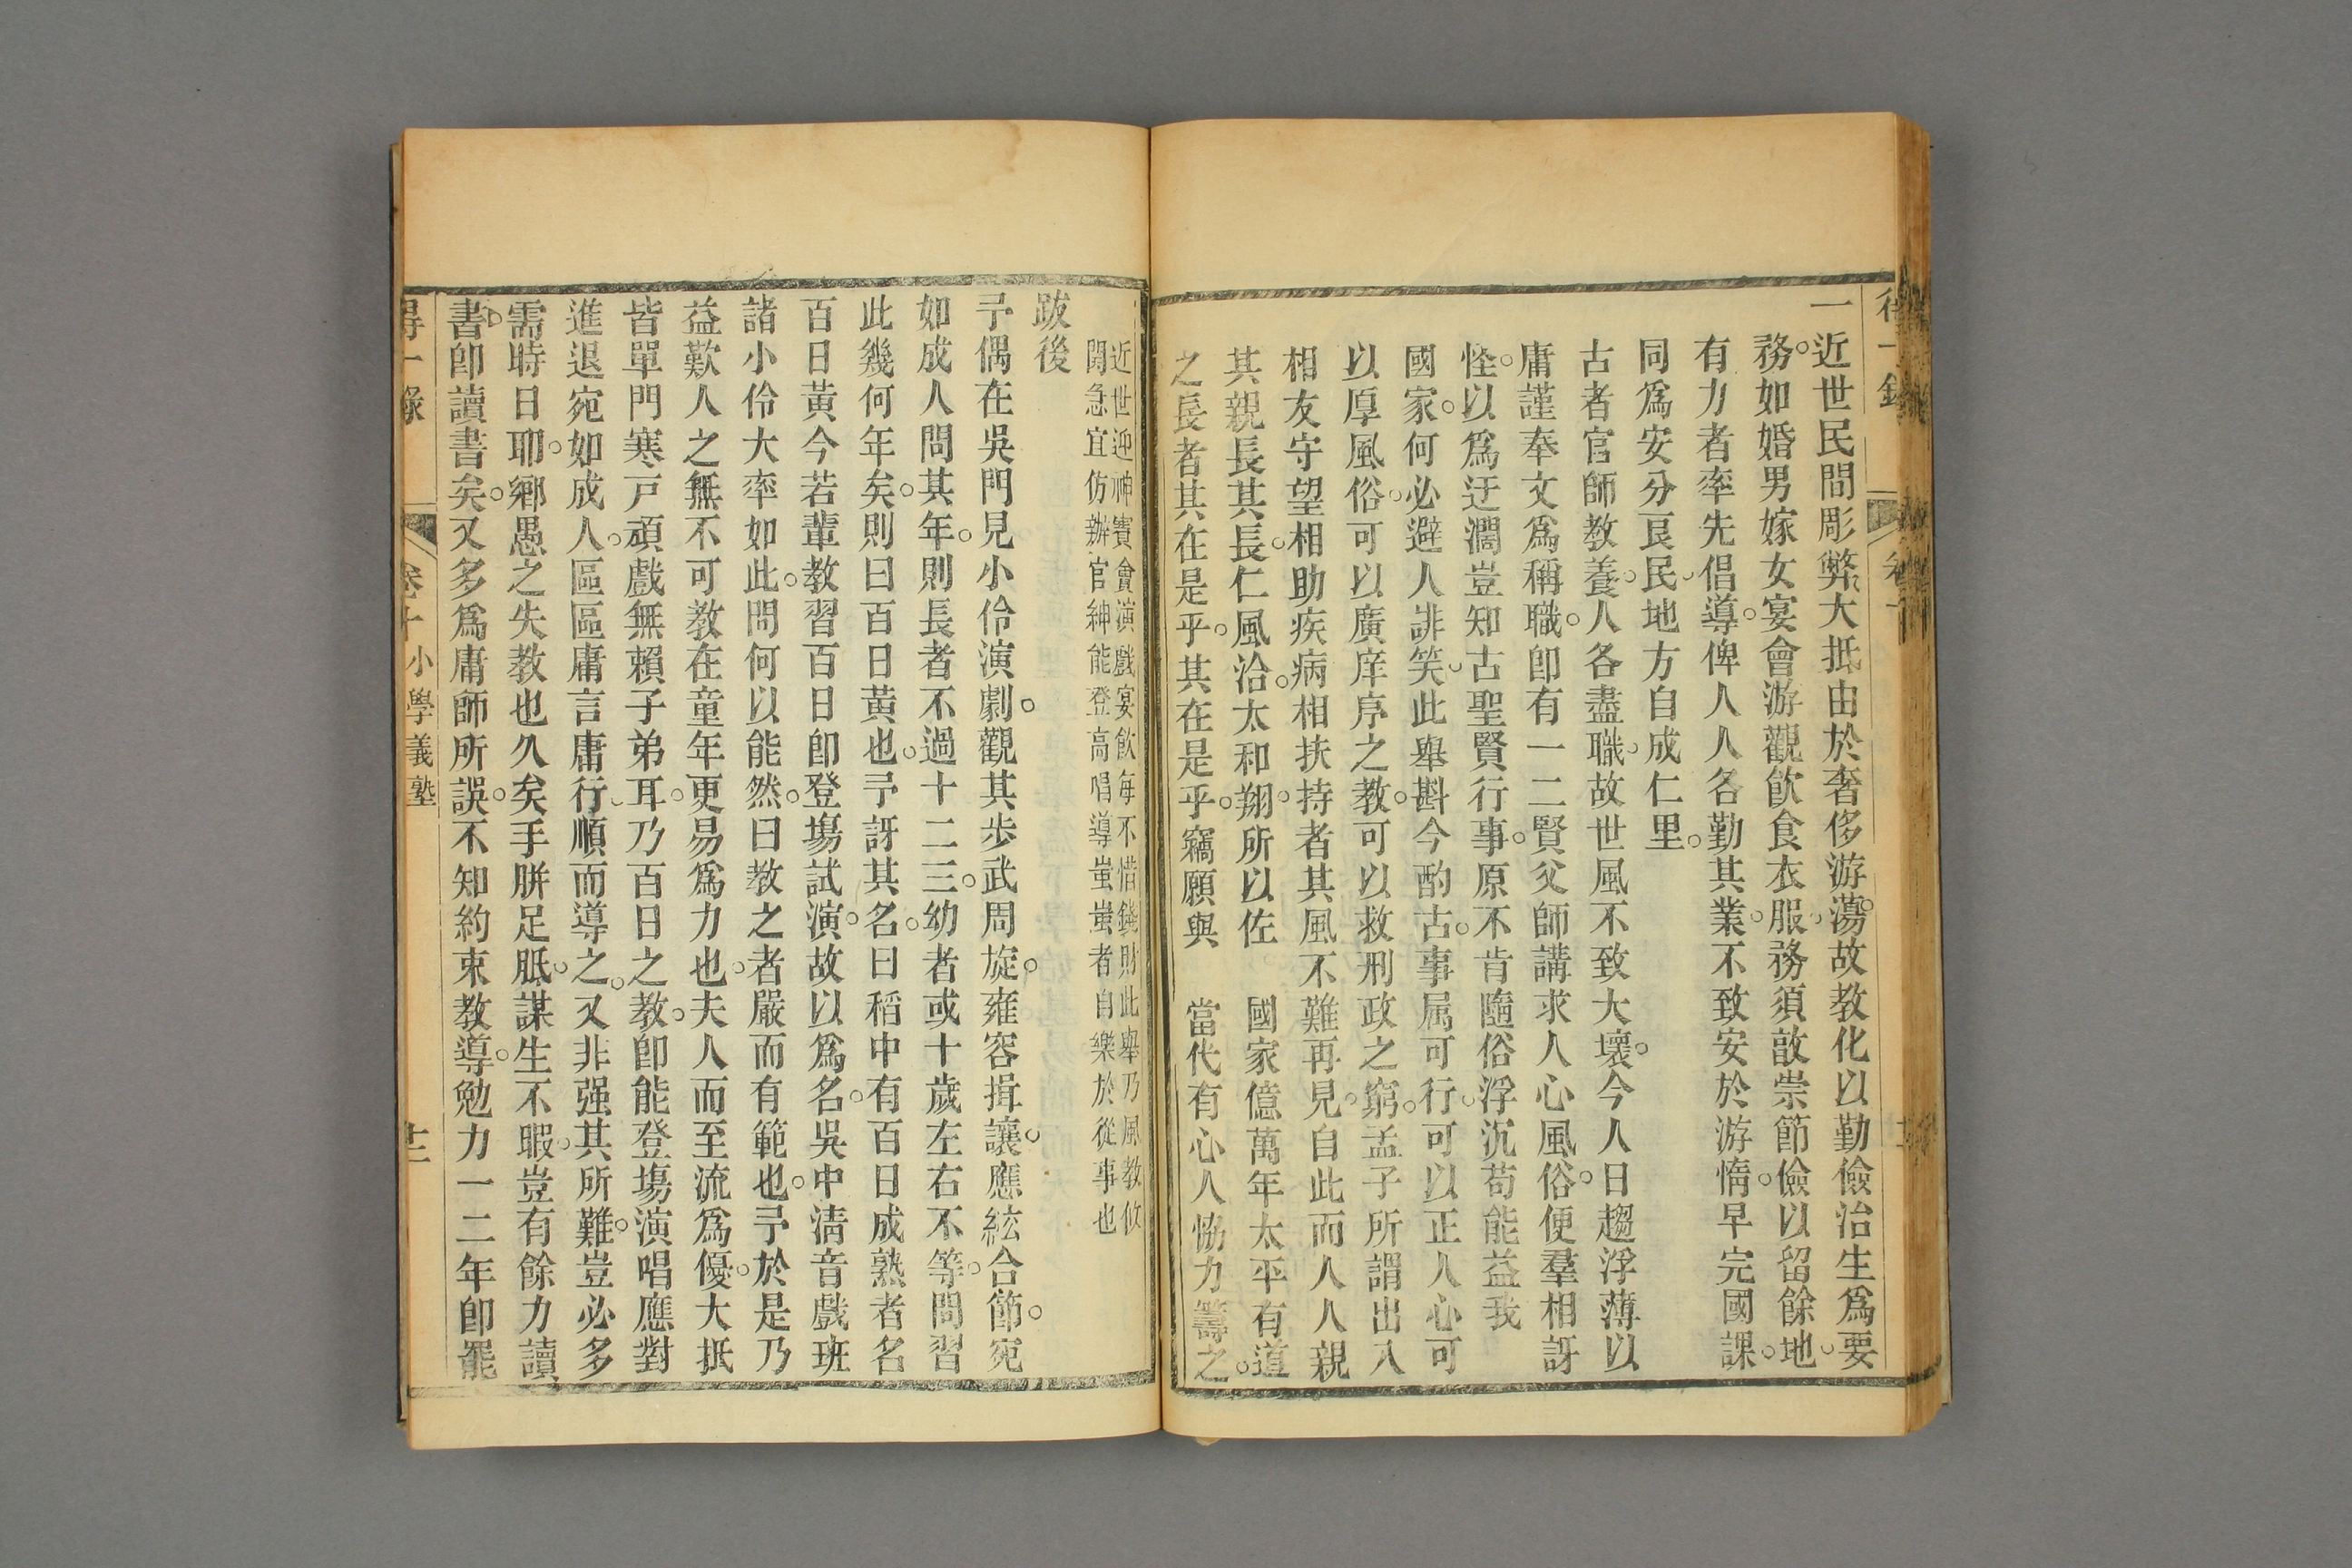 一近世民間彫弊大抵由於奢侈游蕩。故教化以勤儉治生爲要
務。如婚男嫁女宴會游觀飲食衣服。務須敦崇節儉以留餘地。
有力者率先倡導。俾人人各勤其業。不致安於游惰。早完國課。
同爲安分良民。地方自成仁里。
古者官師教養。人各盡職。故世風不致大壞。今人日趨浮薄以
庸謹奉文爲稱職。卽有一二賢父師講求人心風俗。便羣相訝
怪。以爲迂濶豈知古聖賢行事。原不肯隨俗浮沉苟能益我
國家。何必避人誹笑。此舉斟今酌古。事属可行。可以正人心可
以厚風俗。可以廣庠序之教。可以救刑政之窮。孟子所謂出入
相友守望相助疾病相扶持者其風不難再見。自此而人人親
其親長其長。仁風洽。太和翔。所以佐 國家億萬年太平有道
之長者其在是乎。其在是乎。竊願與 當代有心人協力籌之。
近世迎神賽會演戲宴飲每不惜錢財此舉乃風教攸
関急宜仿辦官紳能登高唱導蚩蚩者自樂於從事也
跋後
予偶在吳門見小伶演劇。觀其步武周旋。雍容揖讓。應絃合節。宛
如成人問其年。則長者不過十二三。幼者或十歲左右不等。問習
此幾何年矣。則曰百日黃也。予訝其名。曰稻中有百日成熟者名
百日黃今若輩教習百日卽登塲試演。故以爲名。吳中清音戲班
諸小伶大率如此。問何以能然。曰教之者嚴而有範也。予於是乃
益歎人之無不可教在童年更易爲力也。夫人而至流爲優。大抵
皆單門寒戸頑戲無賴子弟耳。乃百日之教。卽能登塲演唱應對
進退宛如成人。區區庸言庸行。順而導之。又非强其所難。豈必多
需時日耶。鄉愚之失教也久矣手胼足胝。謀生不暇。豈有餘力讀
書。卽讀書矣。又多爲庸師所誤。不知約束教導。勉力一二年卽罷
得一錄 卷十 小學義塾 十二